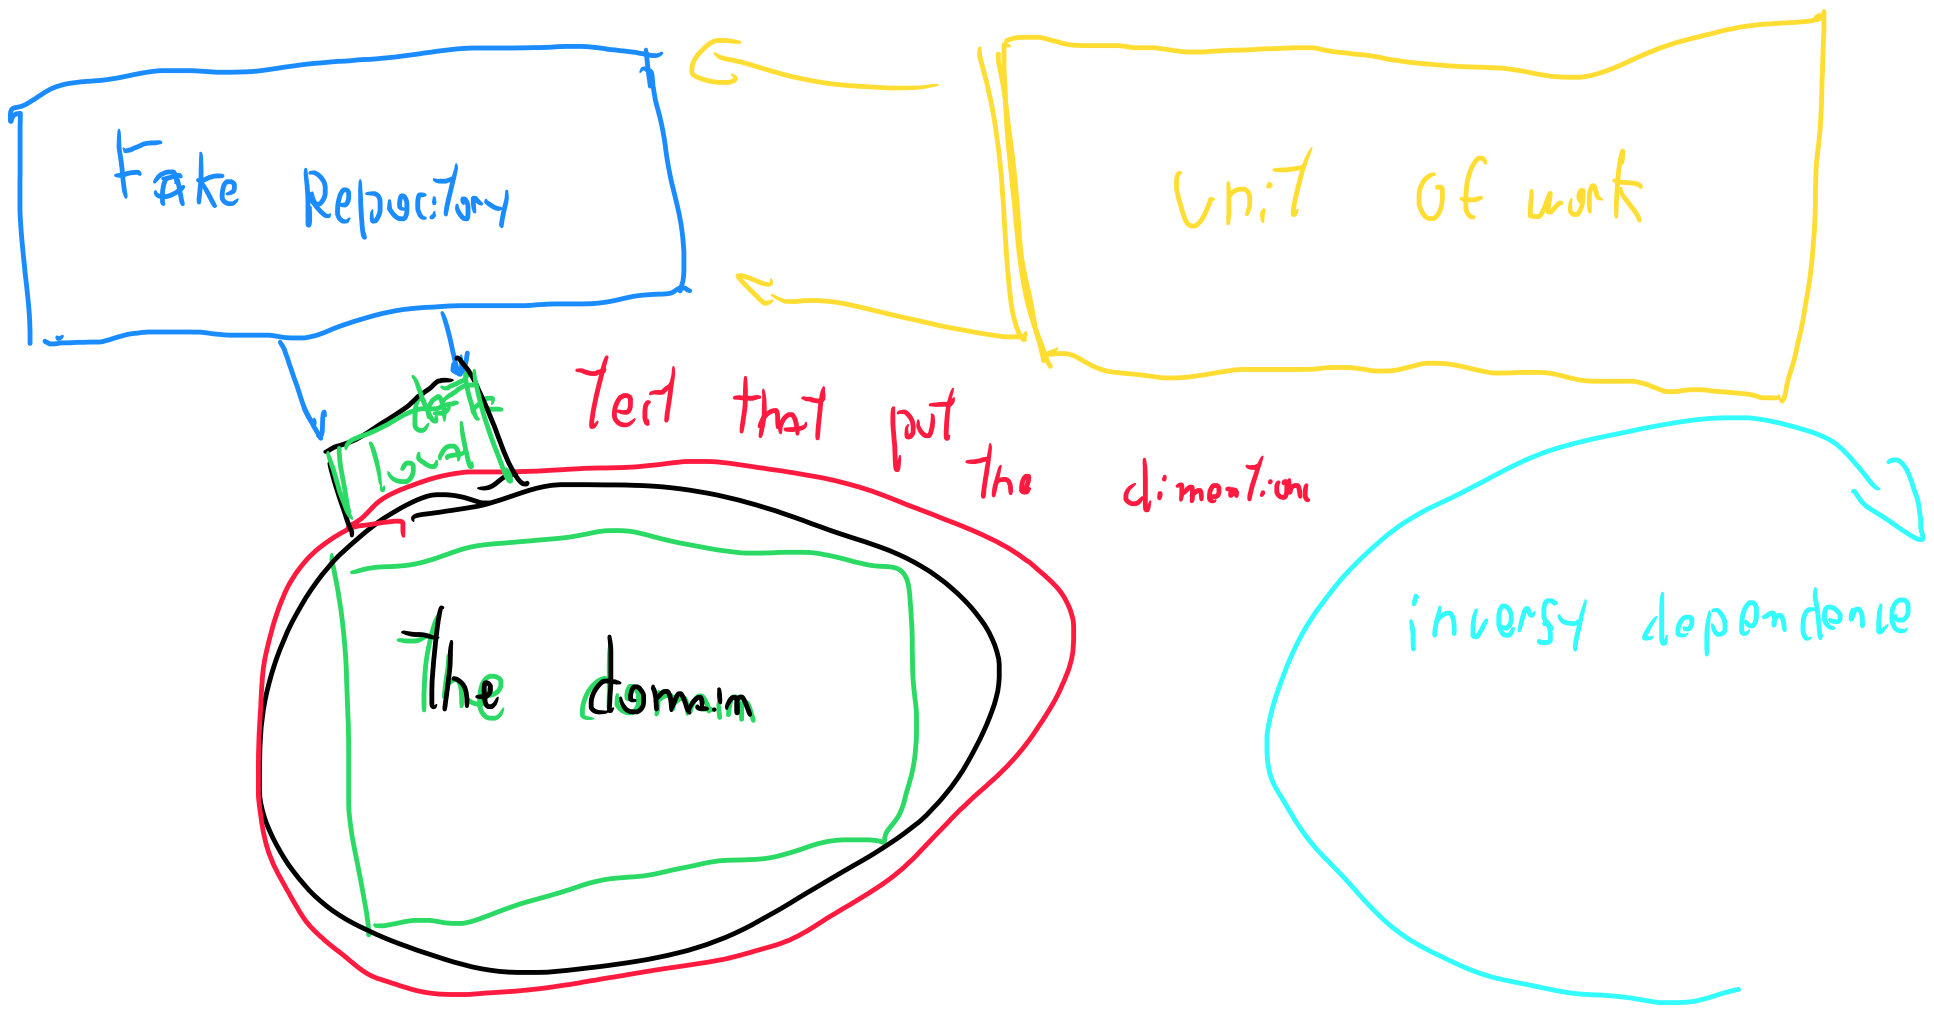 Fake Repository
unit of work
Test that put
the dimentions
The domain
inversy dependence